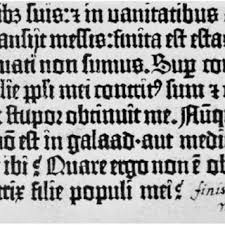 ibꝫ suis: ⁊ in vanitatibus
ansijt messis: finita est estas
uati non sumus. Sup con
lie ppli mei contritꝰ sum ⁊
stupor obtinuit me. Nūq
nō est in galaad. aut medi
ibi? Quare ergo non ē ob
trix filie populi mei? finis